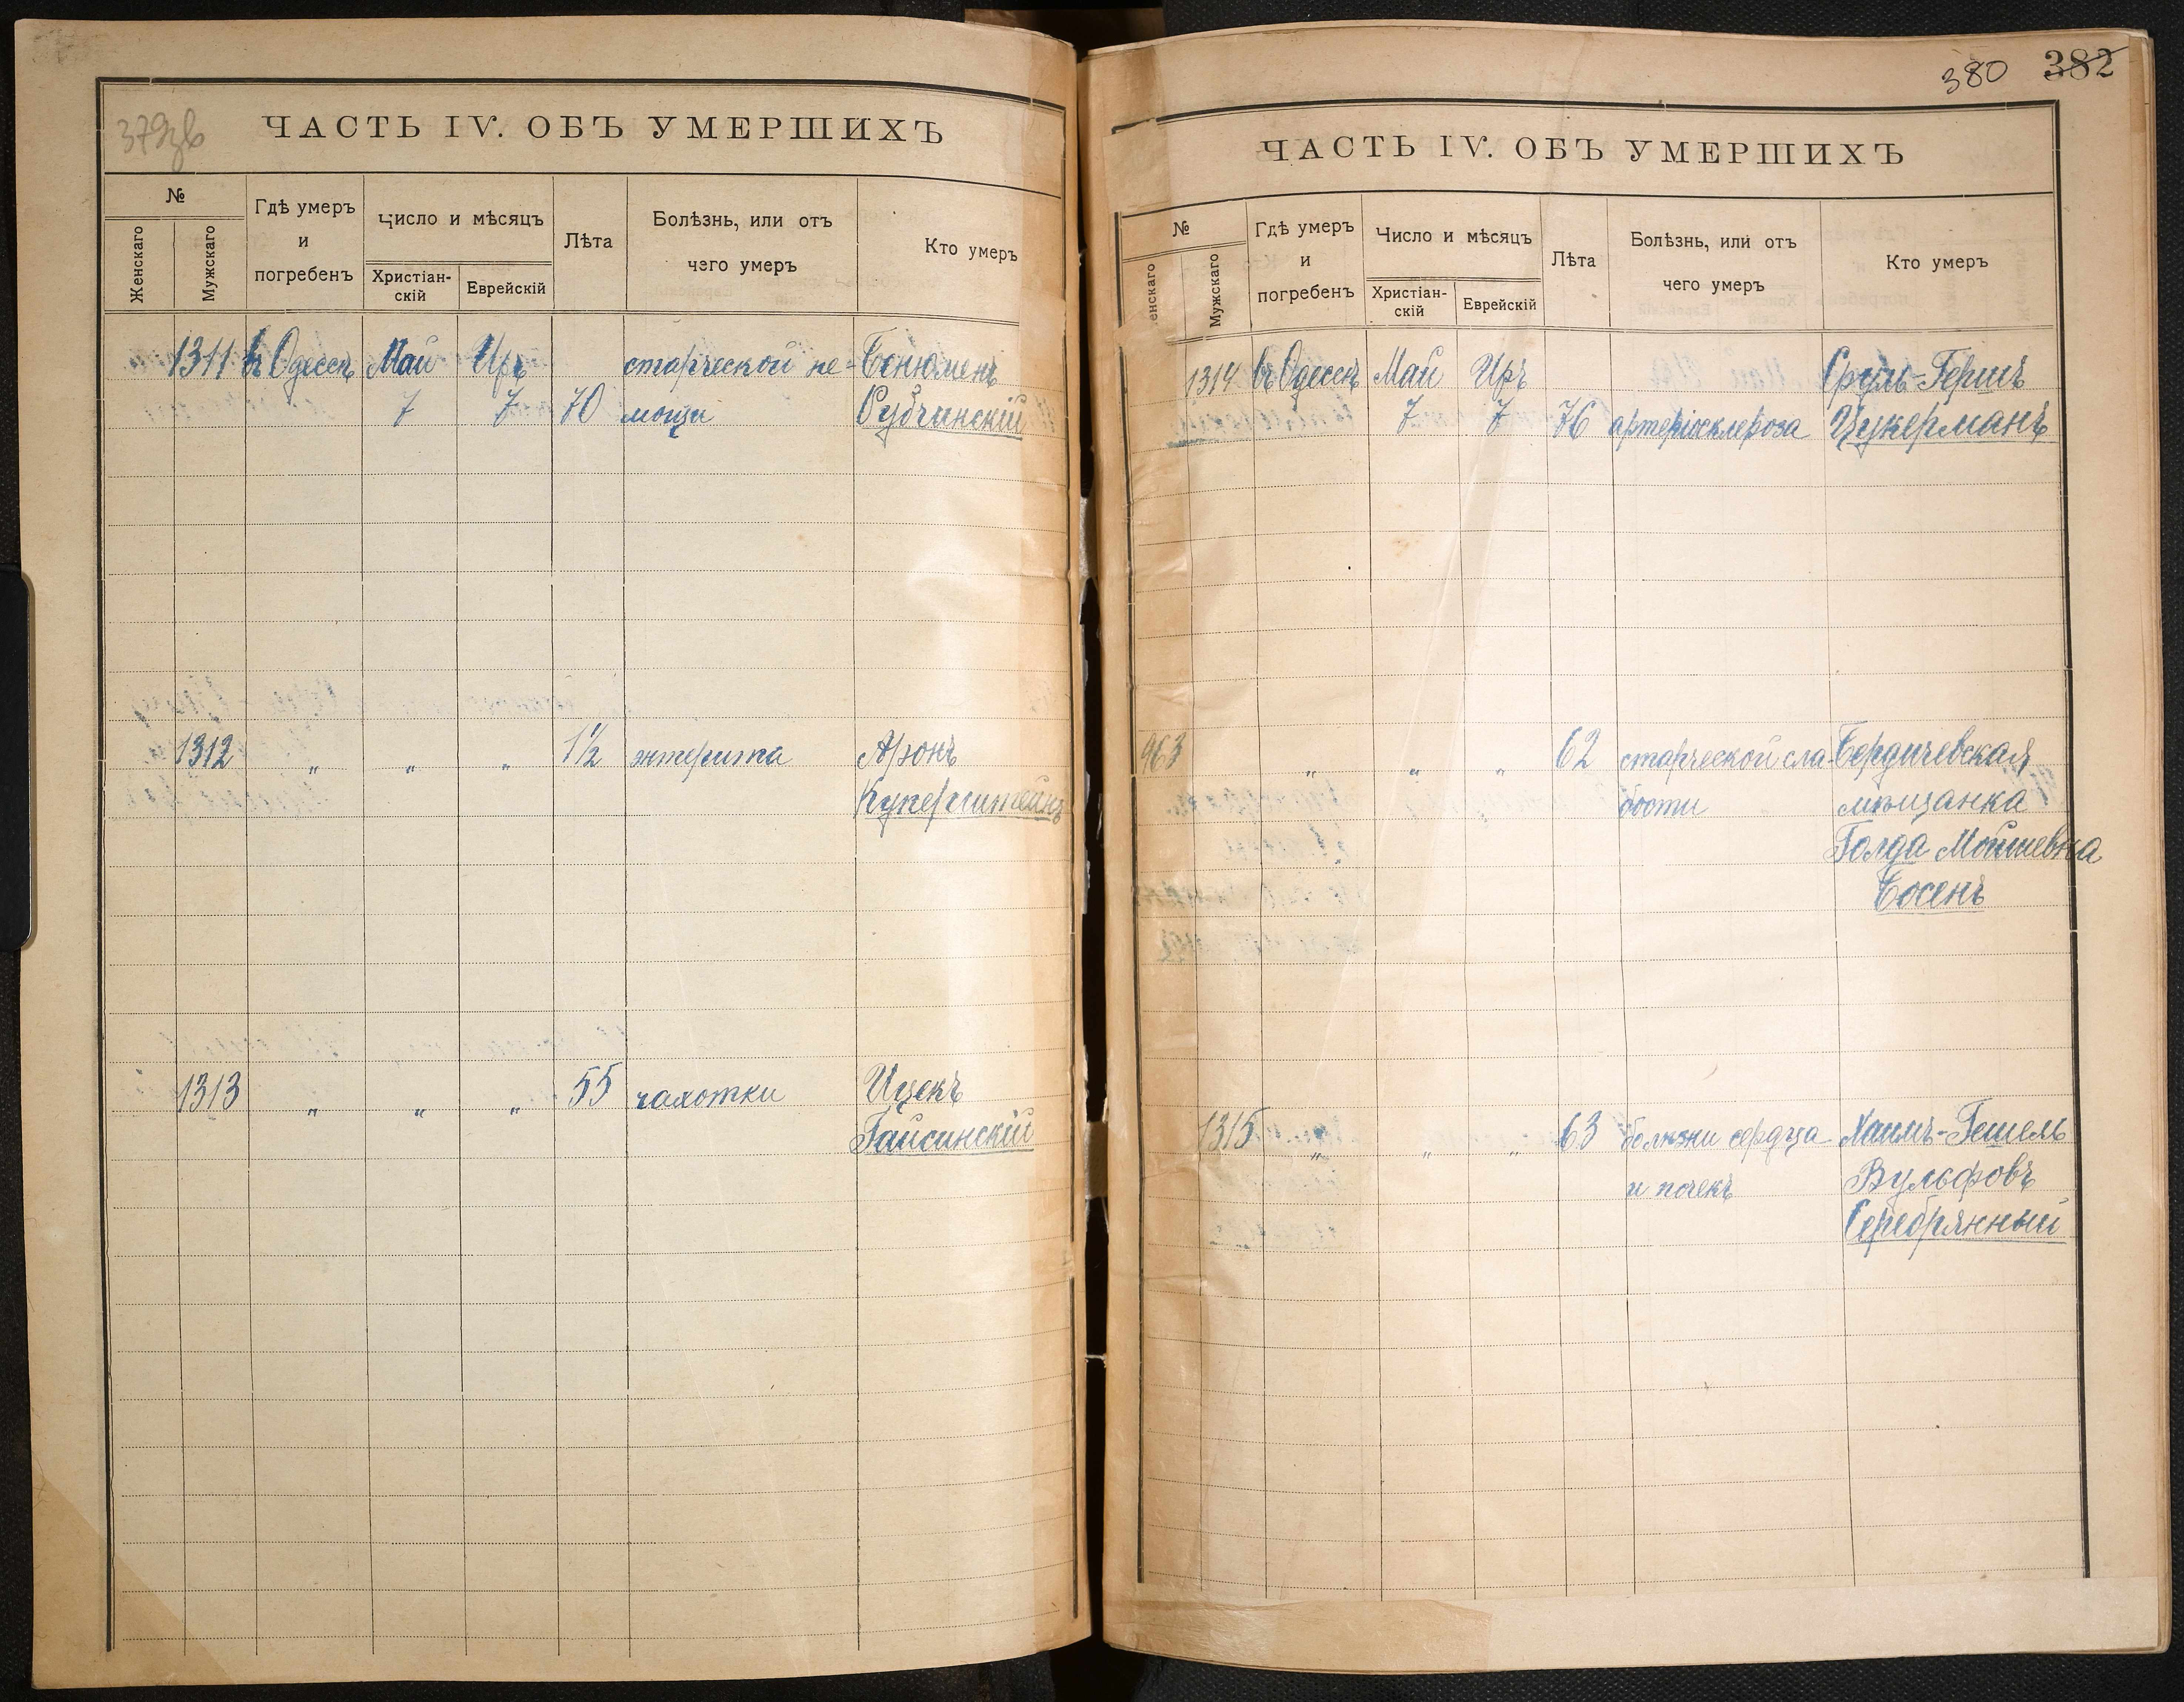 379зв
ЧАСТЬ IV. ОБЪ УМЕРШИХЪ
№
Женскаго
Мужскаго
Гдѣ умеръ
и
погребенъ
Число и мѣсяцъ
Христіан-
скій
Еврейскій
Лѣта
Болѣзнь, или отъ
чего умеръ
Кто умеръ
1311 въ Одессѣ Май Иръ старческой не- Бенюменъ
7 7 70 мощи Рубчинскій
1312 „ „ „ 1½ энтерита Аронъ
Куперштейнъ
1313 „ „ „ 55 чахотки Ицекъ
Гайсинскій
380 382
ЧАСТЬ IV. ОБЪ УМЕРШИХЪ
№
енскаго
Мужскаго
Гдѣ умеръ
и
погребенъ
Число и мѣсяцъ
Христіан-
скій
Еврейскій
Лѣта
Болѣзнь, или отъ
чего умеръ
Кто умеръ
1314 въ Одессѣ Май Иръ Сруль-Гершъ
7 7 76 артеріосклероза Цукерманъ
963 „ „ „ 62 старческой сла- Бердичевская
бости мѣщанка
Голда Мошевна
Босенъ
1315 „ „ „ 63 болѣзни сердца Хаимъ-Гешель
и почекъ Вульфовъ
Серебрянный